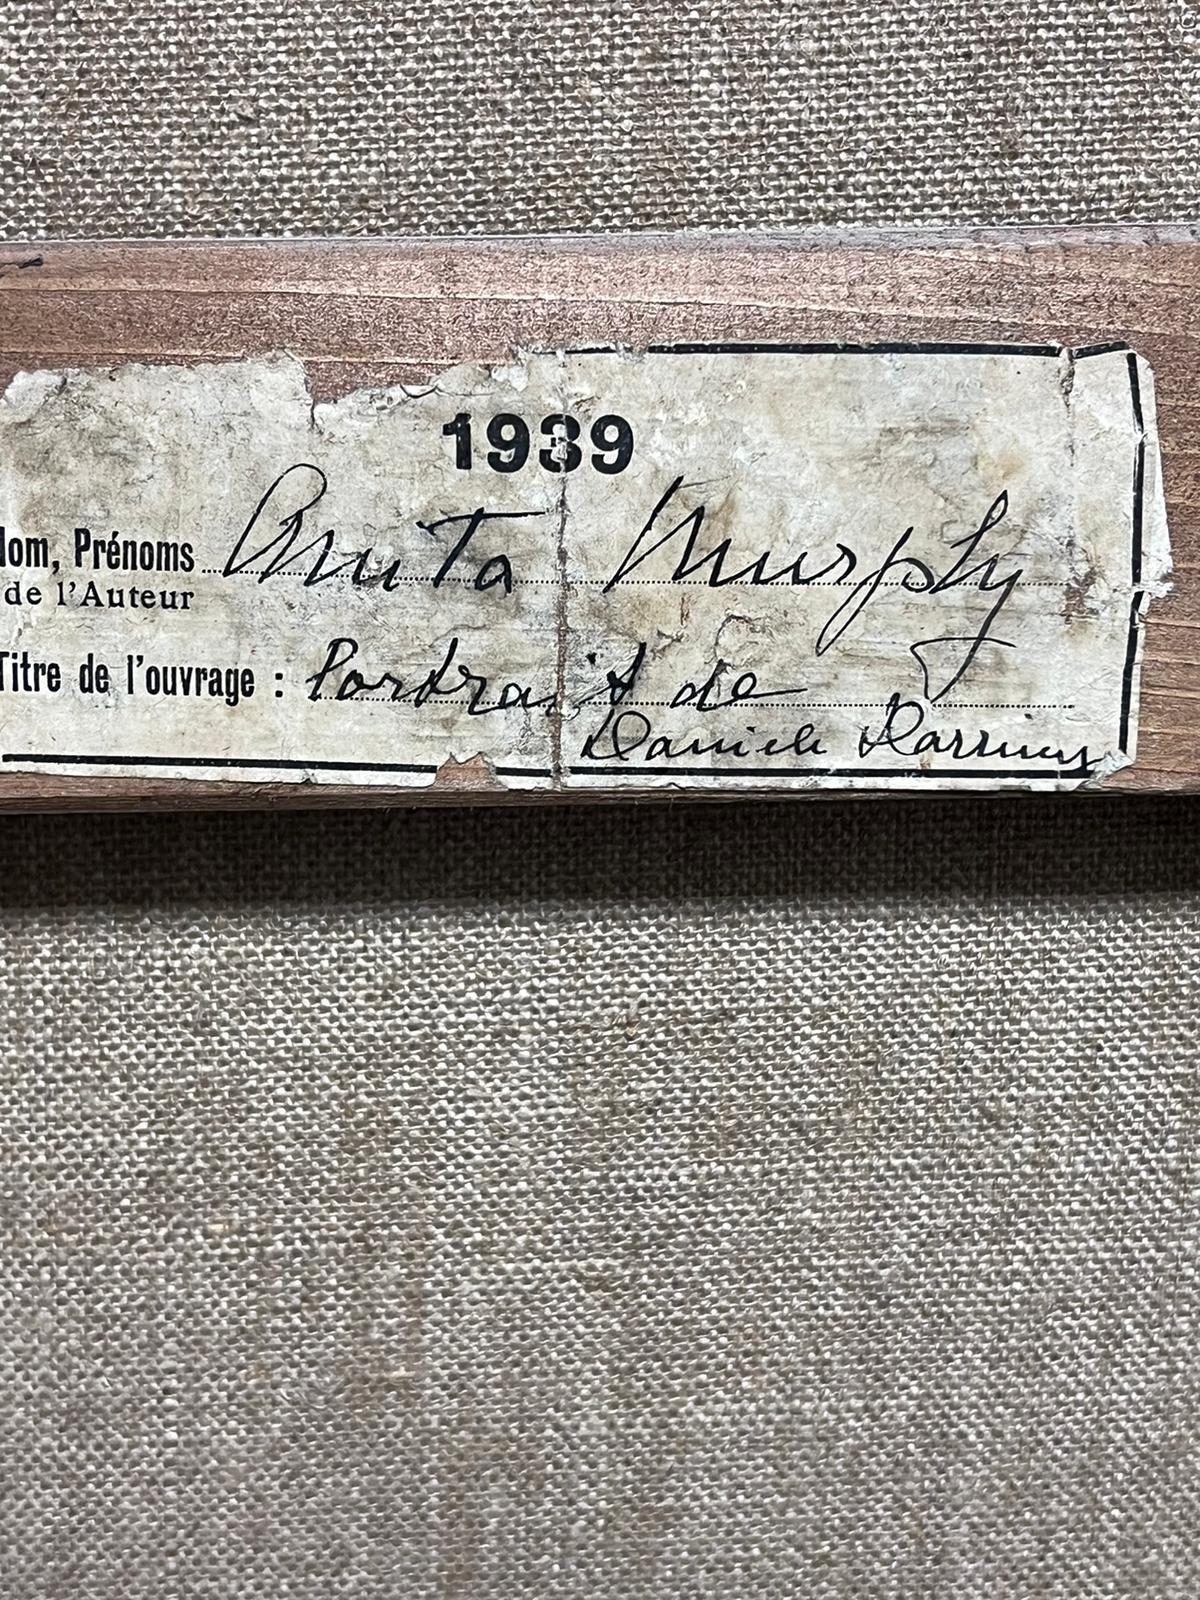 1939
Nom, Prénoms Anita Murphy
de l'Auteur
Titre de l'ouvrage : Portrait de
Daniele